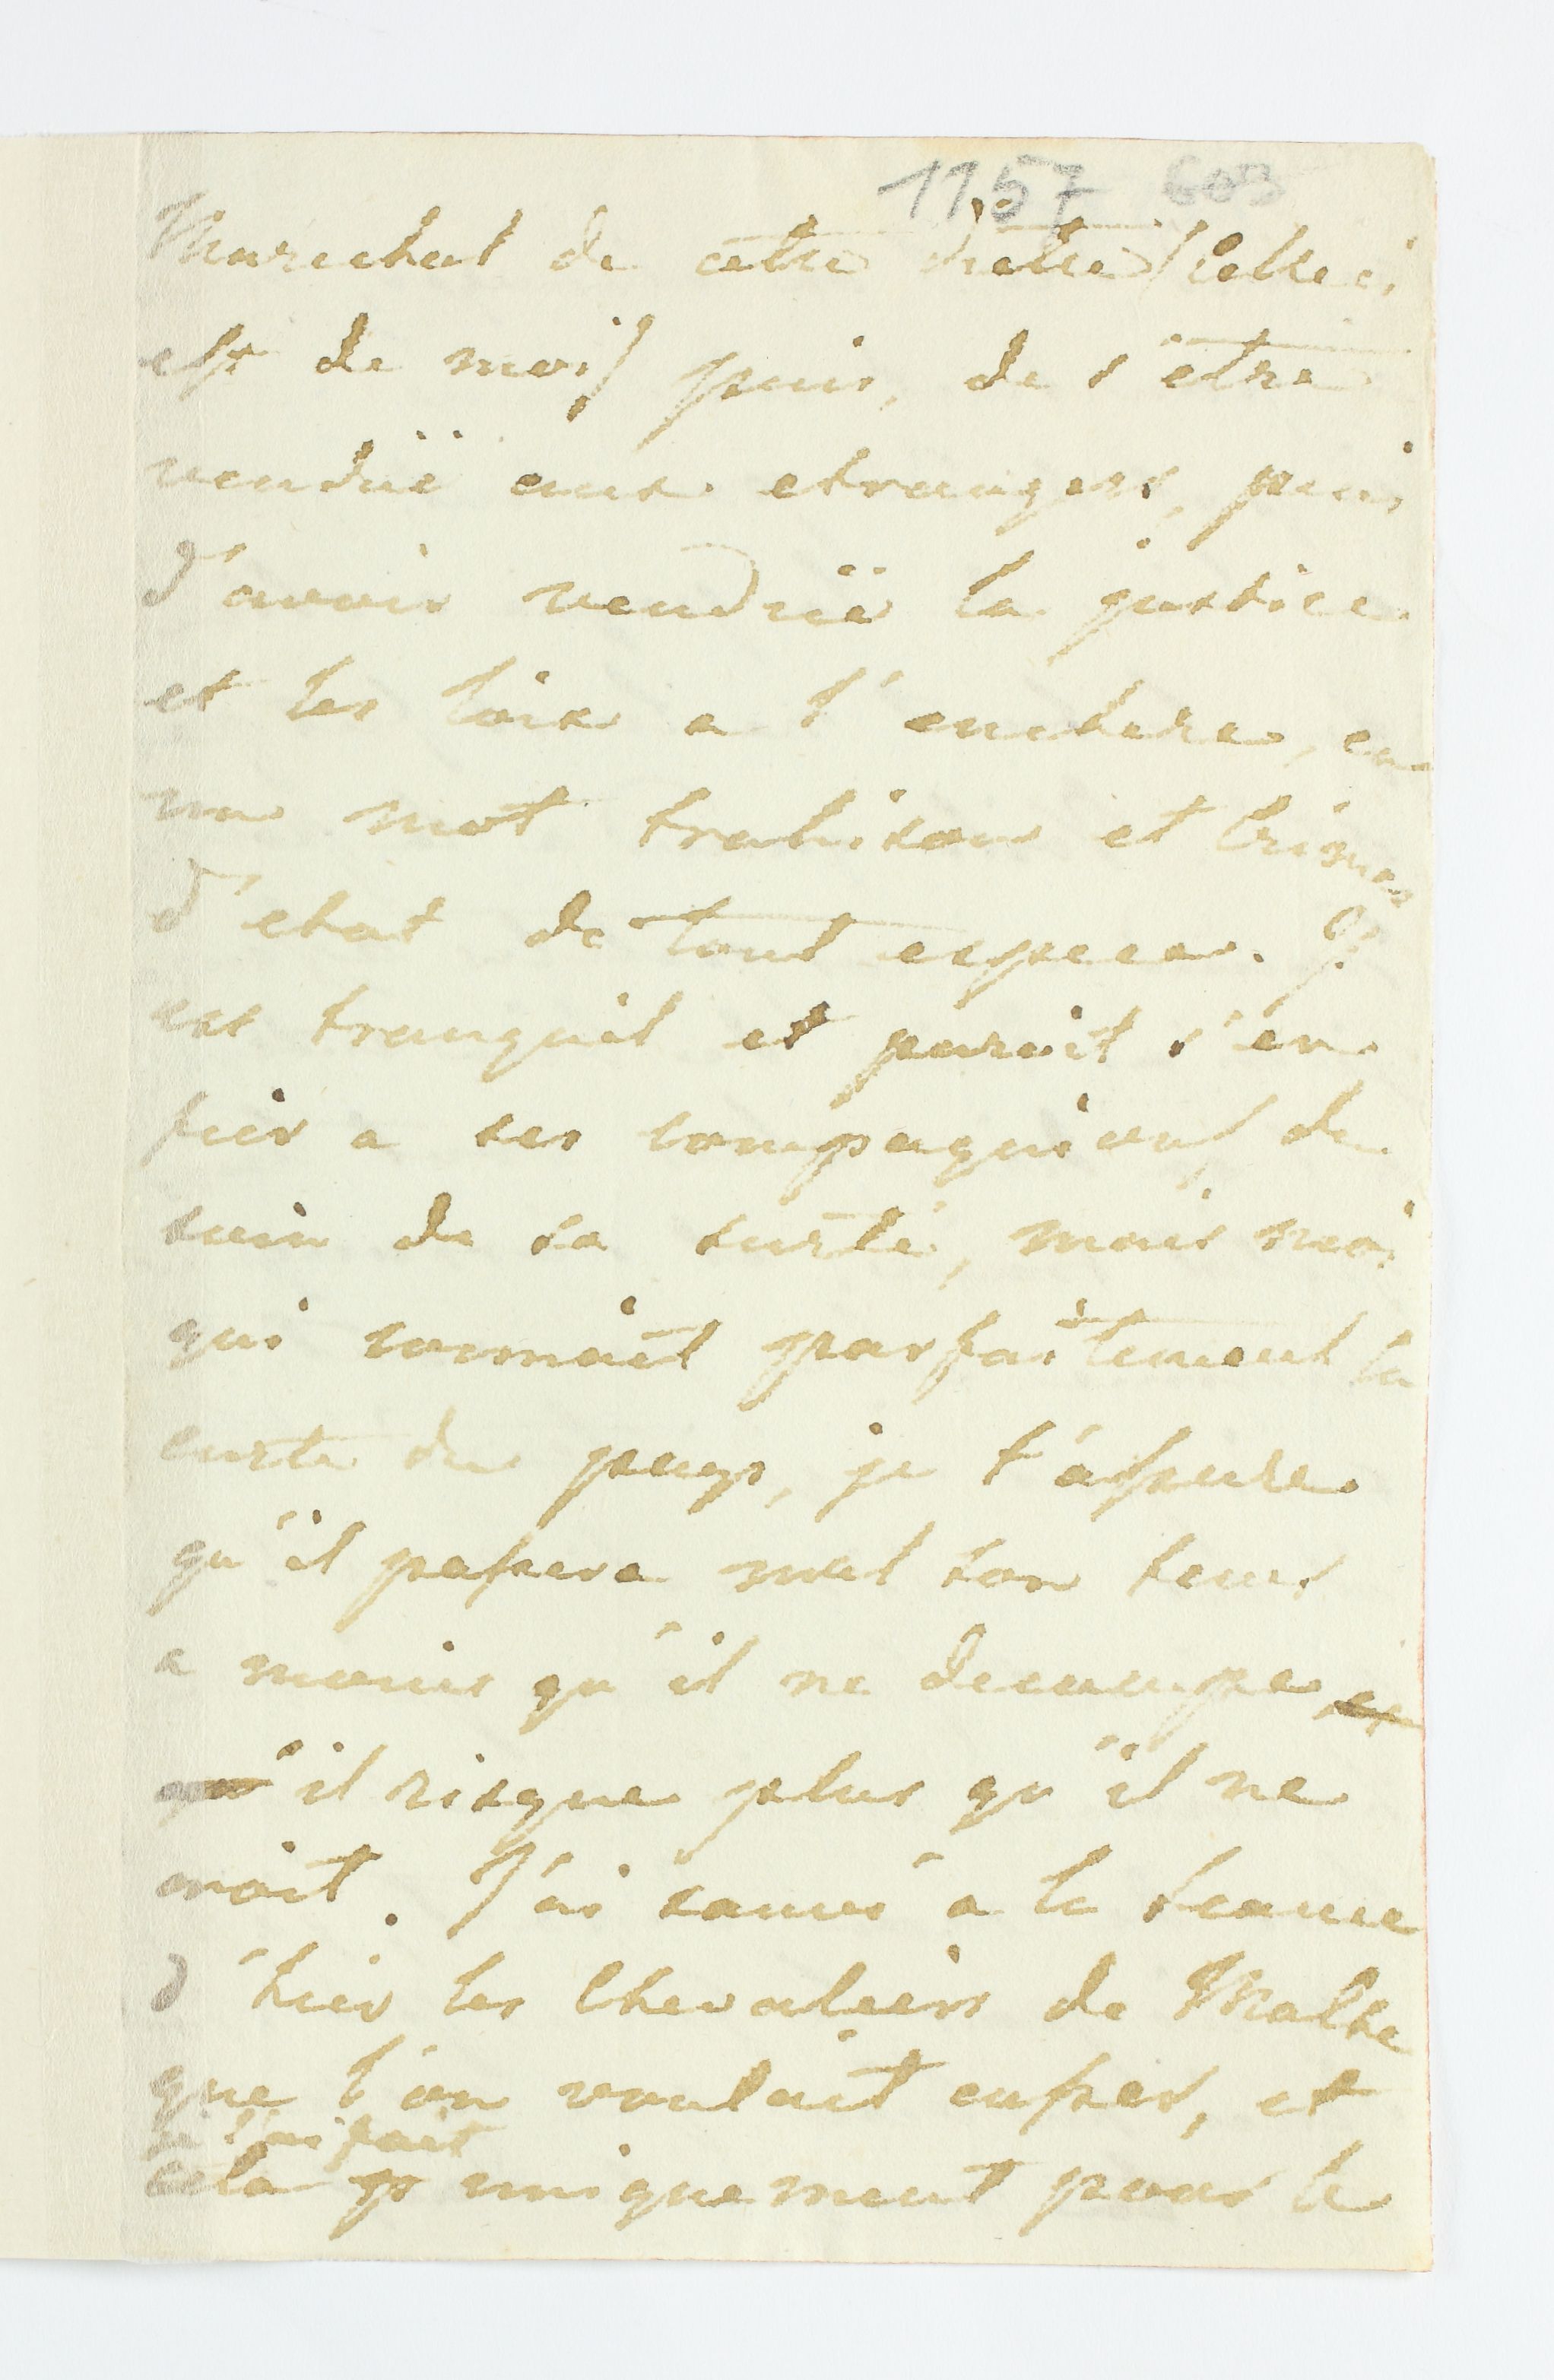 1157 603
Marechal de cette diette /celle ci
est de moi/ puis, de s'être
vendüe aux etrangers, puis
d'avoir vendüe la justice
et les loix a l'enchere, en
un mot trahison et crimes
d'etat de tout especes. Il
est tranquil et paroit s'en
fier a ses compagnions du
soin de sa surté, mais moi
qui connoit parfaitement la
carte du pays, je t'assure
qu'il passera mal son tems
a moins qu'il ne decampe, et
qu'il risque plus qu'il ne
croit. J'ai sauvé a la seance
d'hier les Chevaliers de Malte
que l'on voulait casser, et
je l'ai fait
cela p uniquement pour le